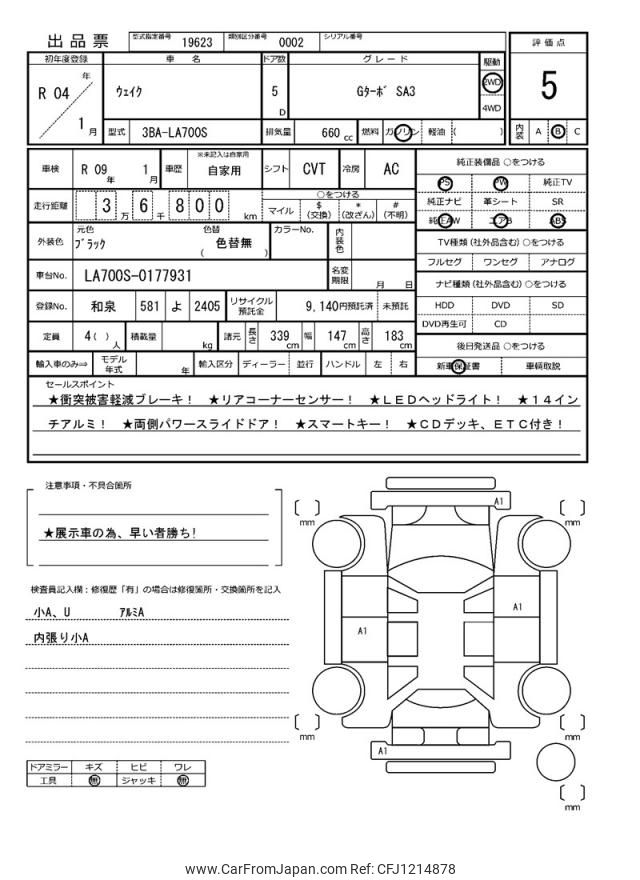 出品票 型式指定番号 19623 類別区分番号 0002 シリアル番号
評価点
5
初年度登録 車名 ドア数 グレード 駆動
R 04 年 1 月
ウェイク 5 D Gターボ SA3 2WD 4WD
型式 3BA-LA700S 排気量 660 cc 燃料 ガソリン 軽油 ( )
内装 A B C
車検 R 09 年 1 月 車歴 ※未記入は自家用 自家用 シフト CVT 冷房 AC
走行距離 3 万 6 千 8 0 0 km ○をつける
マイル $ (交換) * (改ざん) # (不明)
外装色 元色 ブラック 色替 色替無 ( ) カラーNo. 内装色
車台No. LA700S-0177931 名変期限 月 日
登録No. 和泉 581 よ 2405 リサイクル預託金 9,140円預託済 未預託
定員 4( )人 積載量 kg 諸元 長さ 339 cm 幅 147 cm 高さ 183 cm
輸入車のみ⇒ モデル年式 年 輸入区分 ディーラー 並行 ハンドル 左 右
純正装備品 ○をつける
PS PW 純正TV
純正ナビ 革シート SR
純正AW エアB ABS
TV種類(社外品含む) ○をつける
フルセグ ワンセグ アナログ
ナビ種類(社外品含む) ○をつける
HDD DVD SD
DVD再生可 CD
後日発送品 ○をつける
新車保証書 車輌取説
セールスポイント
★衝突被害軽減ブレーキ! ★リアコーナーセンサー! ★LEDヘッドライト! ★14イン
チアルミ! ★両側パワースライドドア! ★スマートキー! ★CDデッキ、ETC付き!
注意事項・不具合箇所
★展示車の為、早い者勝ち!
検査員記入欄:修復歴「有」の場合は修復箇所・交換箇所を記入
小A、U アルミA
内張り小A
ドアミラー キズ ヒビ ワレ
工具 無 ジャッキ 無
A1
mm mm
A1
A1
mm mm
A1
mm
www.CarFromJapan.com Ref: CFJ1214878